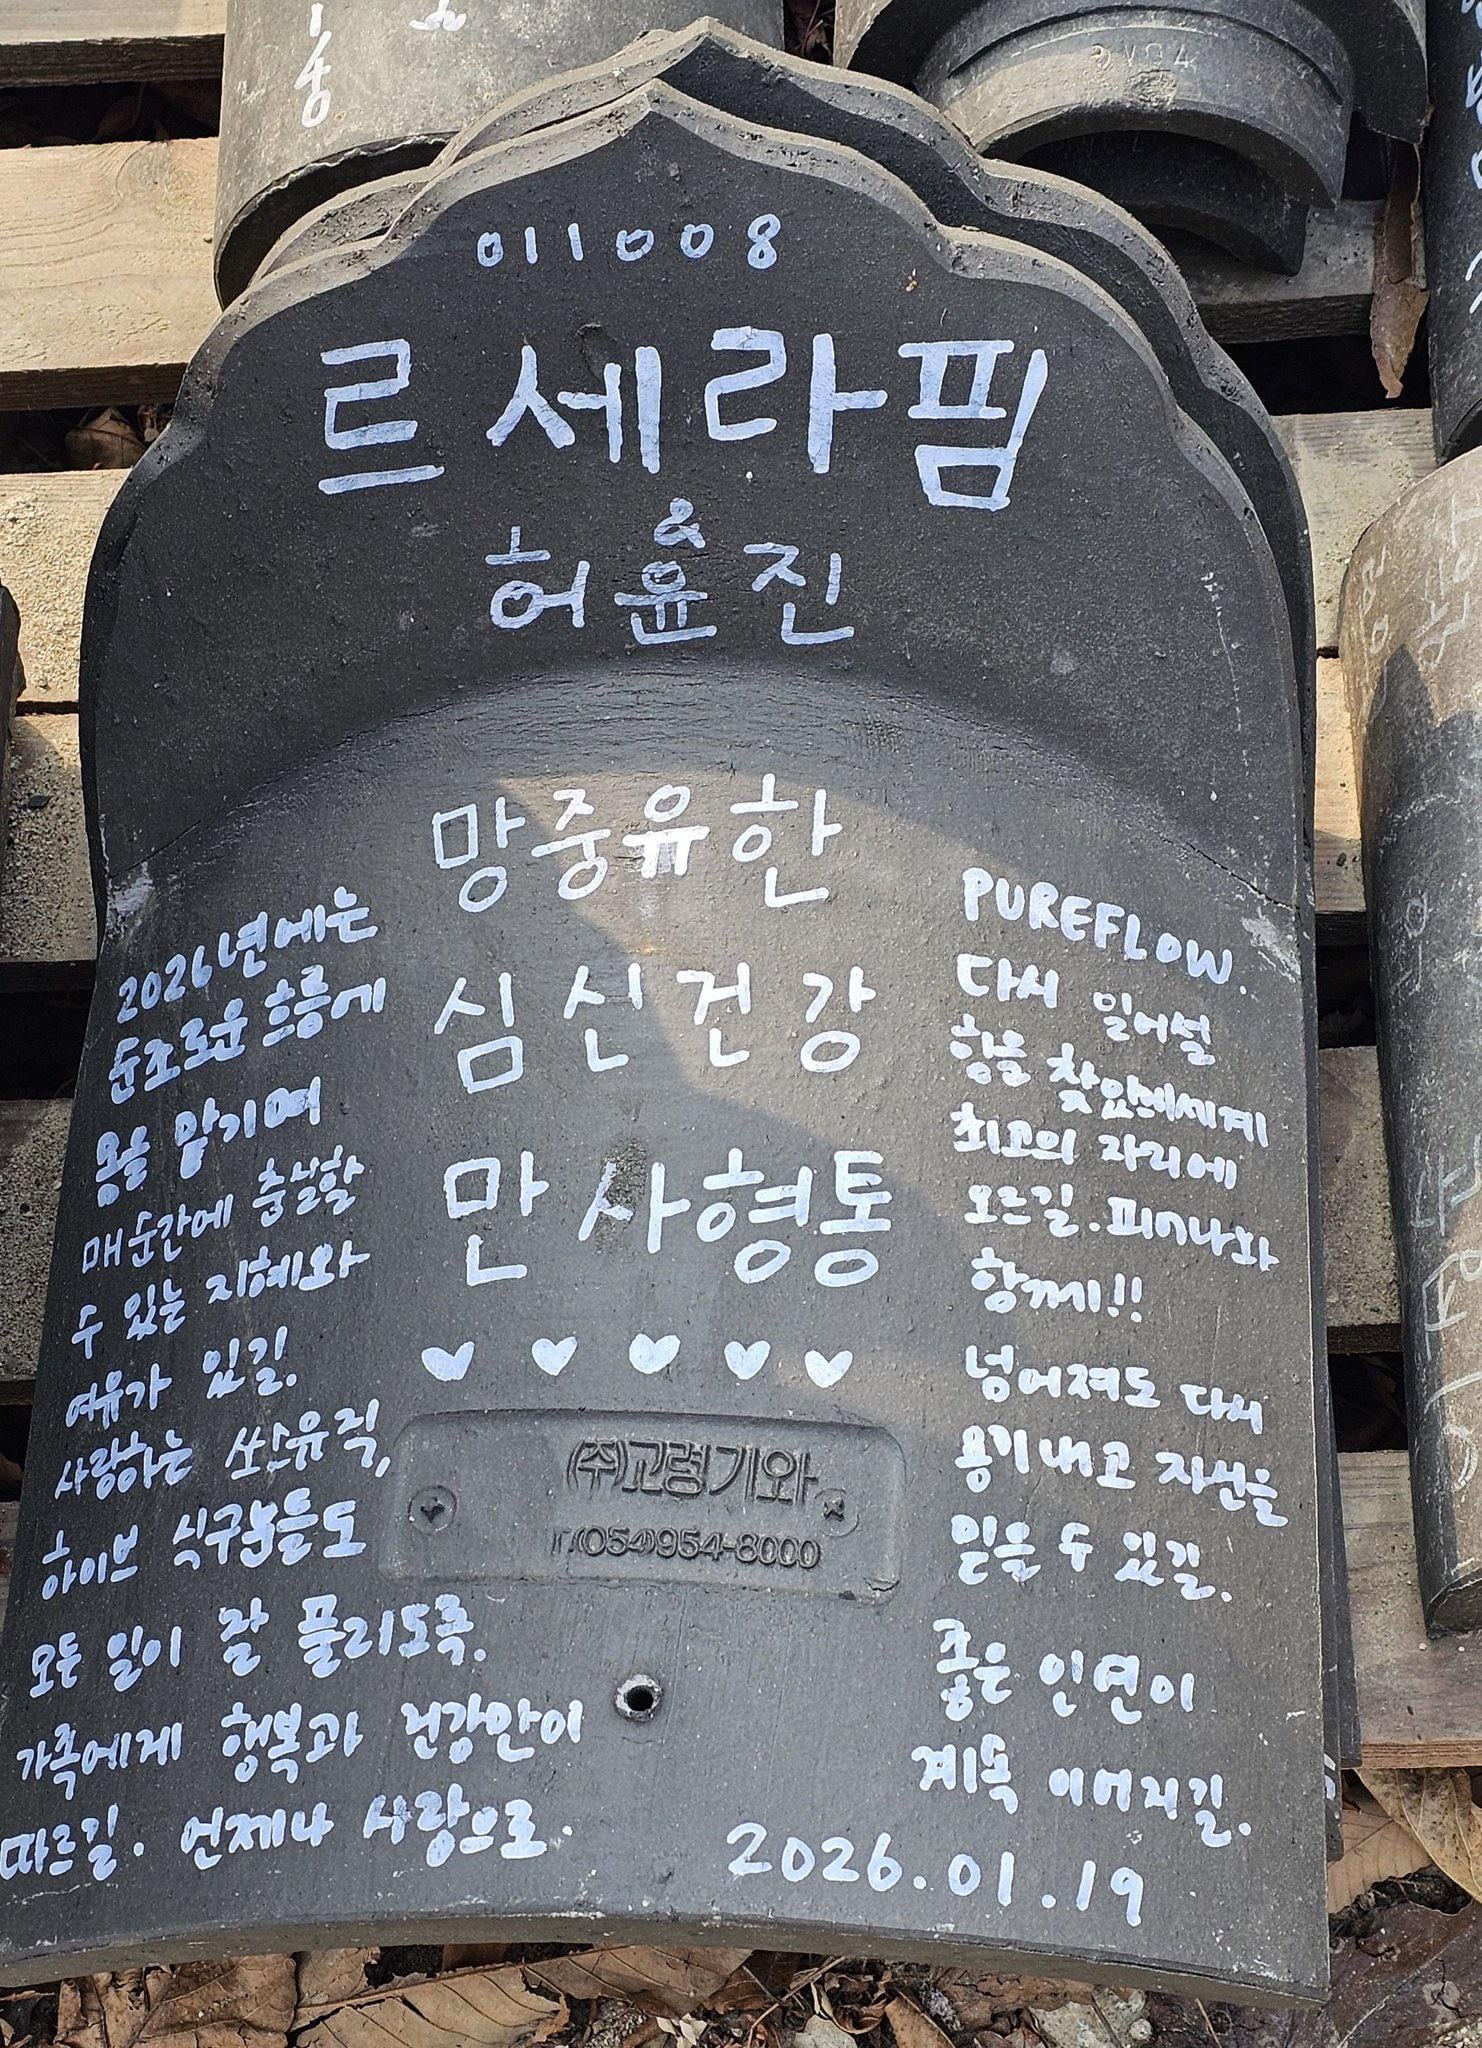 011008
르세라핌
&
허윤진
망중유한
심신건강
만사형통
2026년에는
순조로운 흐름에
몸을 맡기며
매순간에 충실할
수 있는 지혜와
여유가 있길.
사랑하는 쏘스뮤직,
하이브 식구분들도
모든 일이 잘 풀리도록.
가족에게 행복과 건강만이
따르길. 언제나 사랑으로.
PUREFLOW.
다시 일어설
힘을 찾았으니 세계
최고의 자리에
오르길. 피어나와
함께!!
넘어져도 다시
용기내고 자신을
믿을 수 있길.
좋은 인연이
계속 이어지길.
2026.01.19
(주)고령기와
T.(054)954-8000